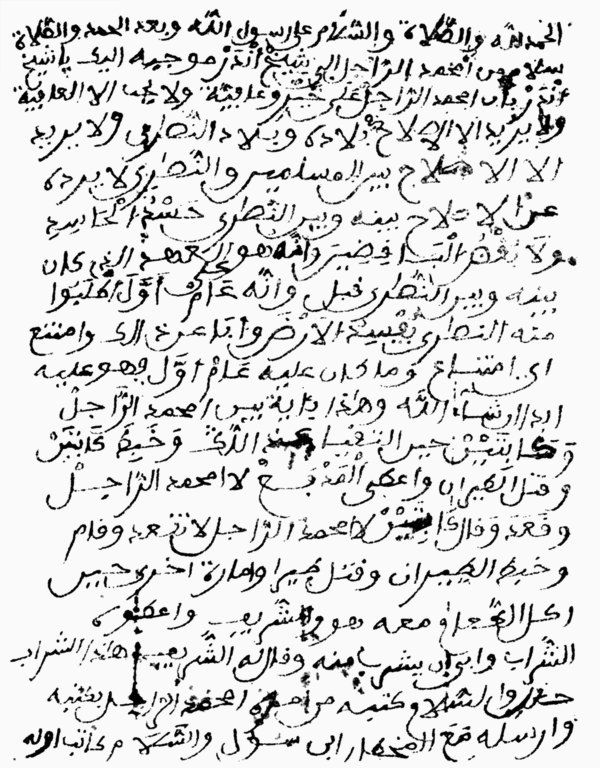 الحمد لله والصلاة والسلام على رسول الله وبعد الحمد والصلاة
سلام من احمد الراجل الى شيخ أنذر موجبه اليك يا شيخ
أنذر بان احمد الراجل على خير وعافية ولا يحب الا العافية
ولا يريد الا الاصلاح بلاده وبلاد النصارى ولا يريد
الا الاصلاح بين المسلمين والنصارى لا يرده
عن الاصلاح بينه وبين النصارى الحاسد
ولا وانه هو على العهد الذي كان
بينه وبين النصارى قبل وانه عام أول اطلبوا
منه النصارى الارض وأبا عن ذالك وامتنع
اي امتناع وما كان عليه عام أول فهو عليه
ابدا ان شاء الله وهذا بين احمد الراجل
وكابتين حين عند وخيط كابتين
وقتل الطيران واعطى المدفع لاحمد الراجل
وقعد وقال كابتين لاحمد الراجل لا تقعد وقام
وخيط الطيران وقتل طيرا وامارة اخرى حين
اكل الطعام معه هو والشريف واعطوه
الشراب وابى ان يشرب منه وقال له الشريف هذا الشراب
والسلام وكتبه احمد الراجل بعثه
وارسله مع المختار ابن سول والسلام